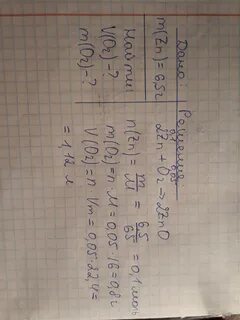 Дано:
m(Zn) = 6,5г
Найти:
V(O₂) - ?
m(O₂) - ?
Решение:
2Zn + O₂ → 2ZnO
n(Zn) = m/M = 6,5/65 = 0,1 моль
m(O₂) = n M = 0,05 · 16 = 0,8 г
V(O₂) = n Vm = 0,05 · 22,4 =
= 1,12 л